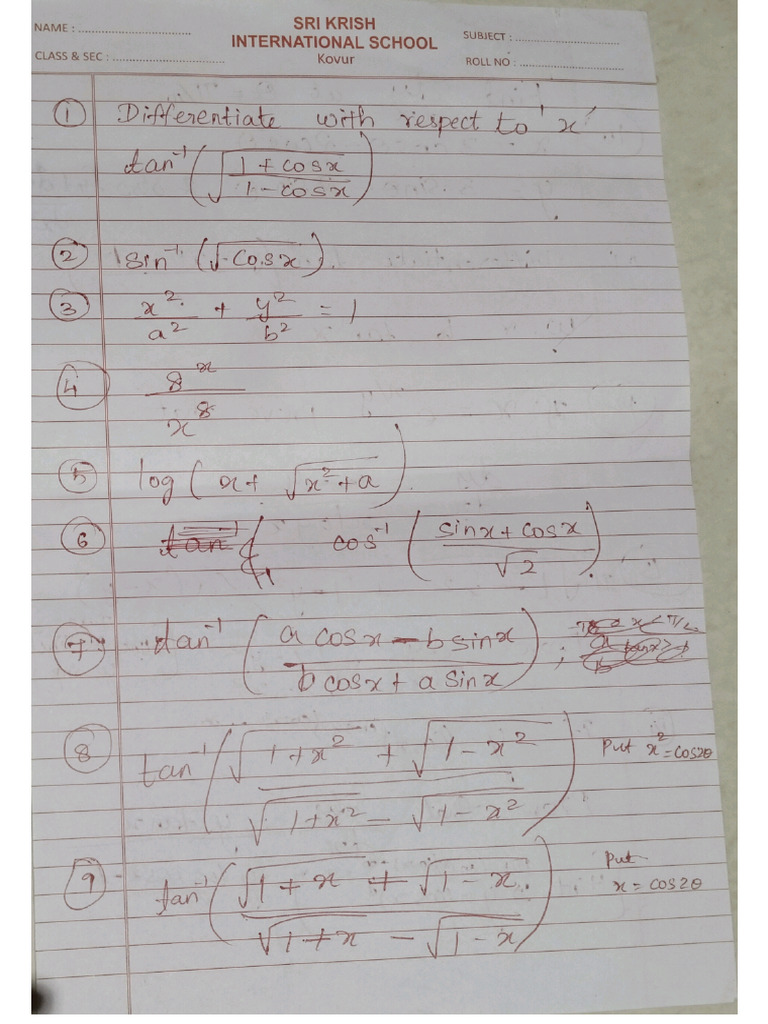 SRI KRISH
NAME : ................................
INTERNATIONAL SCHOOL
SUBJECT : ..............................
CLASS & SEC : ................................
Kovur
ROLL NO : ..............................
① Differentiate with respect to 'x'
tan⁻¹(√((1+cosx)/(1-cosx)))
② sin⁻¹(√cosx).
③ x²/a² + y²/b² = 1
④ 8ˣ/x⁸
⑤ log(x+√(x²+a))
⑥ cos⁻¹((sinx+cosx)/√2)
⑦ tan⁻¹((a cosx - b sinx)/(b cosx + a sinx)) ;
⑧ tan⁻¹((√(1+x²) + √(1-x²))/(√(1+x²) - √(1-x²))) Put x²=cos2θ
⑨ tan⁻¹((√(1+x) + √(1-x))/(√(1+x) - √(1-x))) Put
x = cos2θ